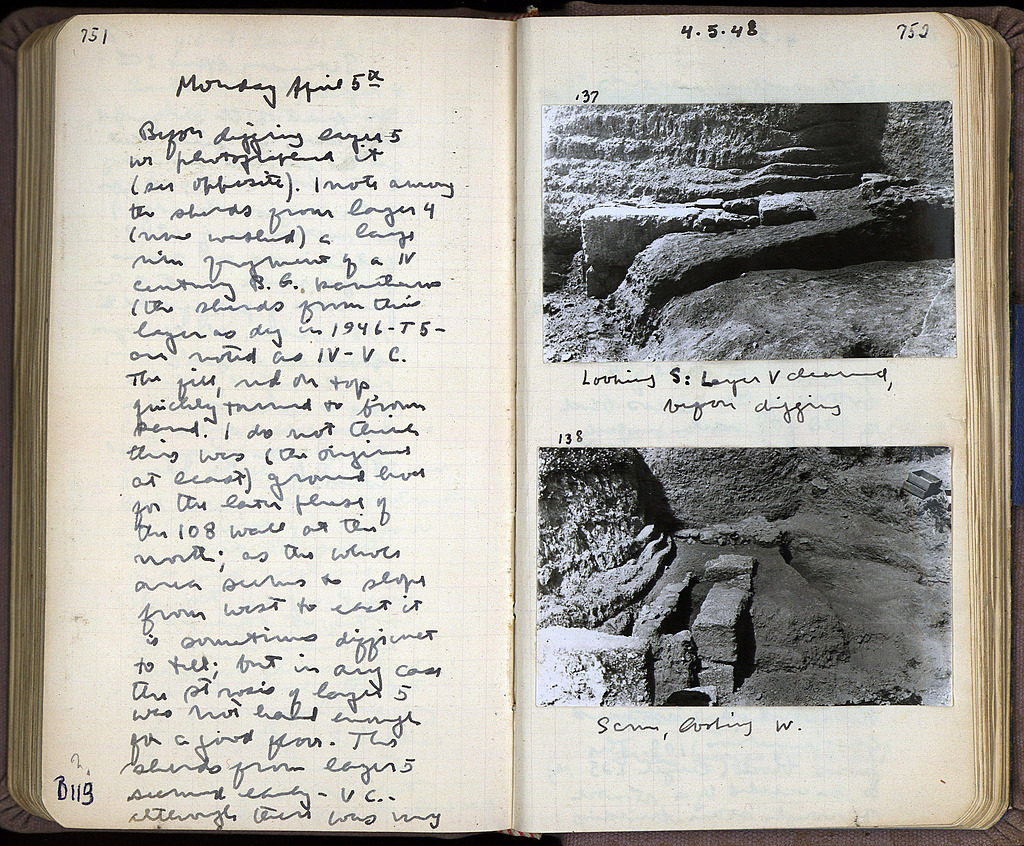 751
Monday April 5th
Before digging layer 5
we photographed it
(see opposite). I note among
the sherds from layer 4
(now washed) a large
rim fragment of a IV
century B.C. kantharos
(the sherds from this
layer as dug in 1946-T5-
are noted as IV-V C.
The fill, red on top
quickly turned to brown
sand. I do not think
this was (the original
at least) ground level
for the later phase of
the 108 wall at the
north; as the whole
area seems to slope
from west to east it
is sometimes difficult
to tell; but in any case
the strosis of layer 5
was not hard enough
for a good floor. The
sherds from layer 5
seemed early - V C. -
although there was very
B119
4.5.48
752
137
Looking S: Layer V cleaned,
before digging
138
Same, looking W.